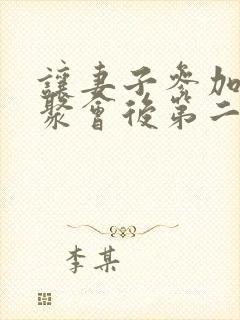 讓妻子參加
聚會後第二
李某